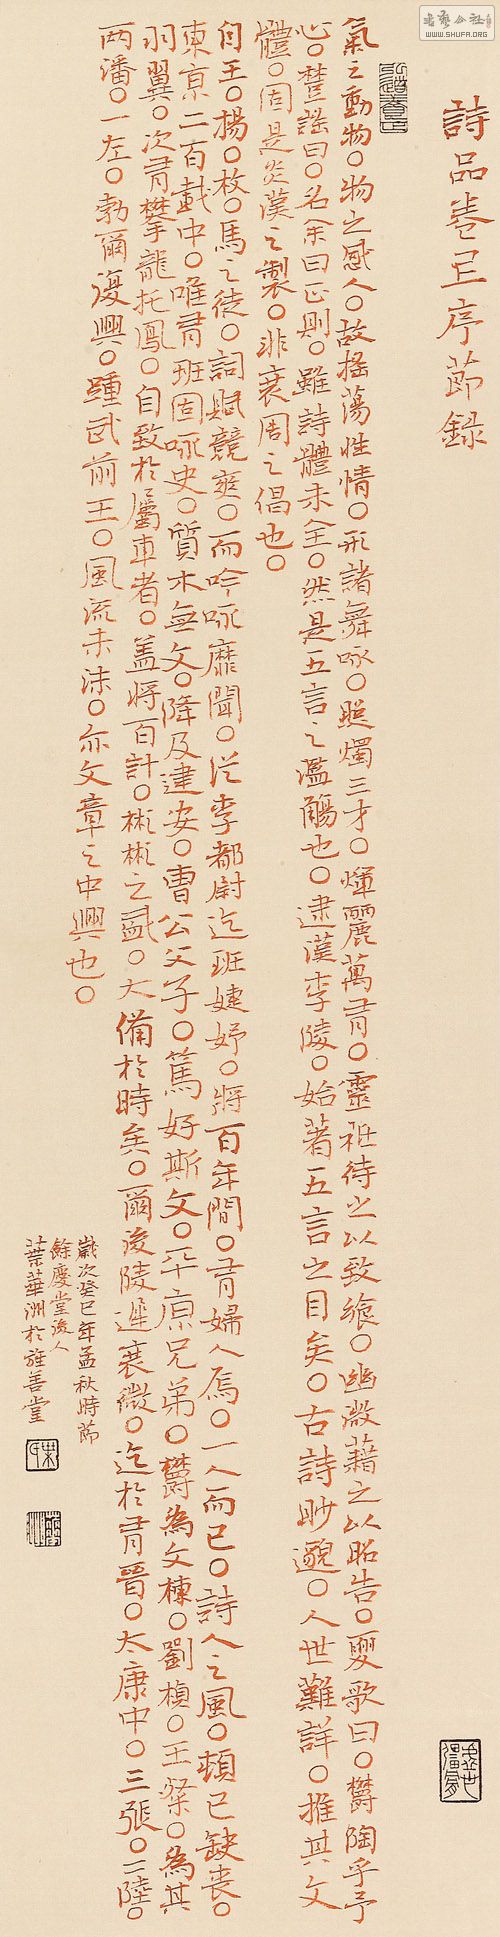 书艺公社
WWW.SHUFA.ORG
詩品卷上序節錄
氣之動物○物之感人○故搖蕩性情○形諸舞咏○照燭三才○煇麗萬有○靈祇待之以致飨○幽微藉之以昭告○夏歌曰○鬱陶乎予
心○楚謠曰○名余曰正則○雖詩體未全○然是五言之濫觴也○逮漢李陵○始著五言之目矣○古詩眇邈○人世難詳○推其文
體○固是炎漢之製○非衰周之倡也○
自王○揚○枚○馬之徒○詞賦競爽○而吟咏靡聞○從李都尉迄班婕妤○將百年間○有婦人焉○一人而已○詩人之風○頓已缺喪○
東京二百載中○唯有班固咏史○質木無文○降及建安○曹公父子○篤好斯文○平原兄弟○鬱為文棟○劉楨○王粲○為其
羽翼○次有攀龍托鳳○自致於屬車者○蓋將百計○彬彬之盛○大備於時矣○爾後陵遲衰微○迄於有晉○太康中○三張○二陸○
兩潘○一左○勃爾復興○踵武前王○風流未沬○亦文章之中興也○
歲次癸巳年孟秋時節
餘慶堂後人
葉華洲於旌善堂